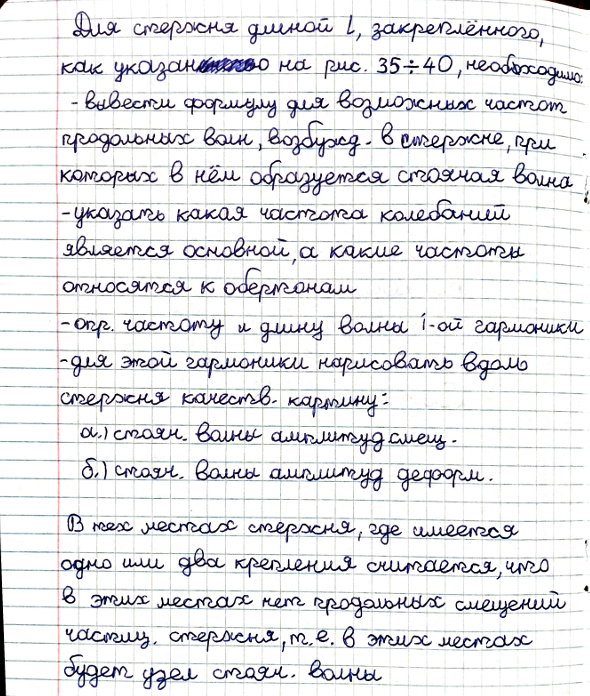 Для стержня длиной l, закреплённого,
как указано на рис. 35÷40, необходимо:
- вывести формулу для возможных частот
продольных волн, возбужд. в стержне, при
которых в нём образуется стоячая волна
- указать какая частота колебаний
является основной, а какие частоты
относятся к обертонам
- опр. частоту и длину волны i-ой гармоники
- для этой гармоники нарисовать вдоль
стержня качеств. картину:
а.) стоян. волны амплитуд смещ.
б.) стоян. волны амплитуд деформ.
В тех местах стержня, где имеется
одно или два крепления считается, что
в этих местах нет продольных смещений
частиц. стержня, т.е. в этих местах
будет узел стоян. волны